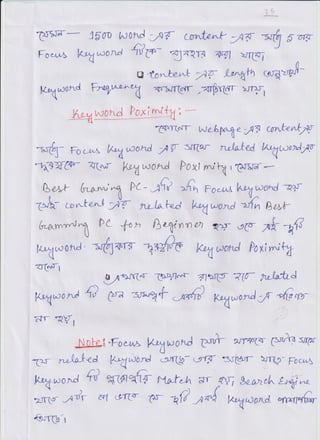 15
যেমন— 1500 word-এর content-এর মধ্যে 5 বার
Focus keyword টিকে ব্যবহার করা যাবে।
content-এর length অনুযায়ী
keyword Frequency কমানো বাড়ানো যায়।
Keyword Poximity:—
কোনো webpage-এর content এর
মধ্যে Focus keyword এর সাথে related keyword এর
দূরত্বকে বলে keyword Poximity। যেমন—
Best Graming PC- এটি যদি Focus keyword হয়
সেই content এর related keyword যদি Best
Gramming PC for Beginner হয় তবে এই দুটি
keyword- মধ্যেকার দূরত্বকে keyword Poximity
বলে।
এখানে খেয়াল রাখতে হবে related
keyword টি যেন সম্পূর্ণ একটি keyword-এ পরিণত
না হয়।
Note: Focus keyword যেটা থাকবে সেটার সাথে
যে related keyword আছে তার সাথে যাতে Focus
keyword টি পুরোপুরি Match না হয়। Search Engine
যাতে এটা না ভাবে যে দুটি একই keyword পাশাপাশি
আছে।